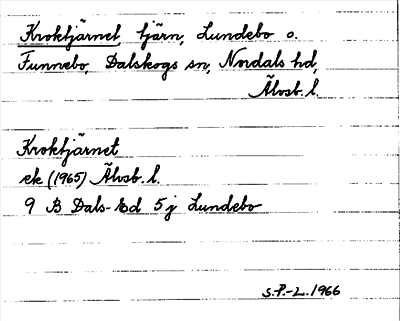 Kroktjärnet, tjärn, Lundebo o.
Funnebo, Dalskogs sn, Nordals hd,
Älvsb. l.
Kroktjärnet
ek (1965) Älvsb. l.
9 B Dals-Ed 5 j Lundebo
S.P.-L. 1966